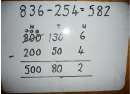 836-254=582
H T U
700
800 130 6
- 200 50 4
500 80 2